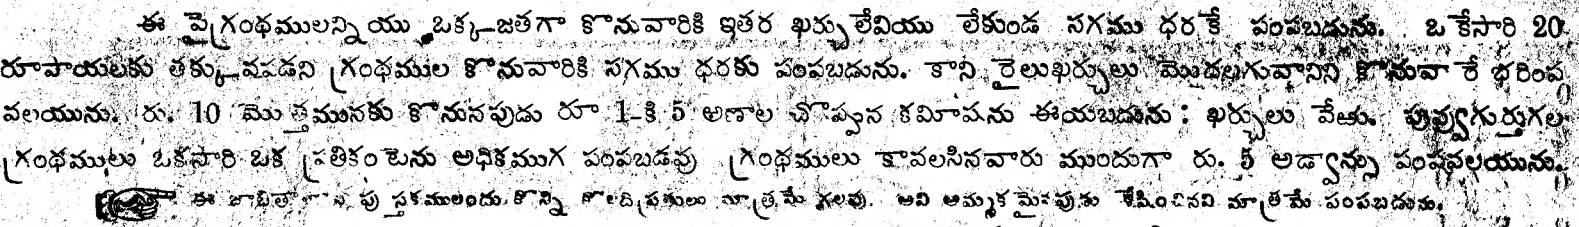 ఈ పైగ్రంథములన్నియు ఒక్క-జతగా కొనువారికి ఇతర ఖర్చులేవియు లేకుండ సగము ధరకే పంపబడును. ఒకేసారి 20
రూపాయలకు తక్కువపడని గ్రంథముల కొనువారికి సగము ధరకు పంపబడును. కాని రైలుఖర్చులు మొదలగువానిని కొనువారే భరింప
వలయును. రు. 10 మొత్తమునకు కొనునపుడు రూ 1-కి 5 అణాల చొప్పున కమీషను ఈయబడును : ఖర్చులు వేఱు. పువ్వుగుర్తుగల
గ్రంథములు ఒకసారి ఒక ప్రతికంటెను అధికముగ పంపబడవు గ్రంథములు కావలసినవారు ముందుగా రు. 5 అడ్వాన్సు పంపవలయును.
ఈ పుస్తకములందు కొన్ని కొలది ప్రతులు మాత్రమే గలవు. అవి అమ్మకమైనపుడు శేషించినవి మాత్రమే పంపబడును.